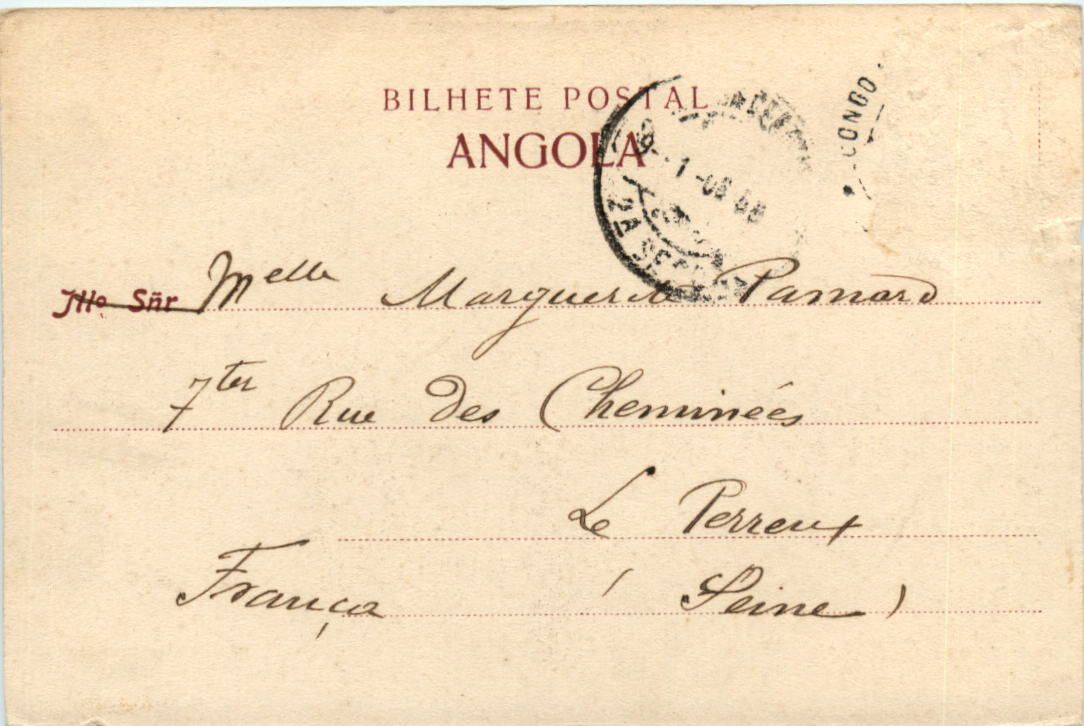 BILHETE POSTAL
ANGOLA
CONGO
2A SEC
Illo Sñr Melle Marguerite Pamard
7ter Rue des Cheminées
Le Perreux
França (Seine)